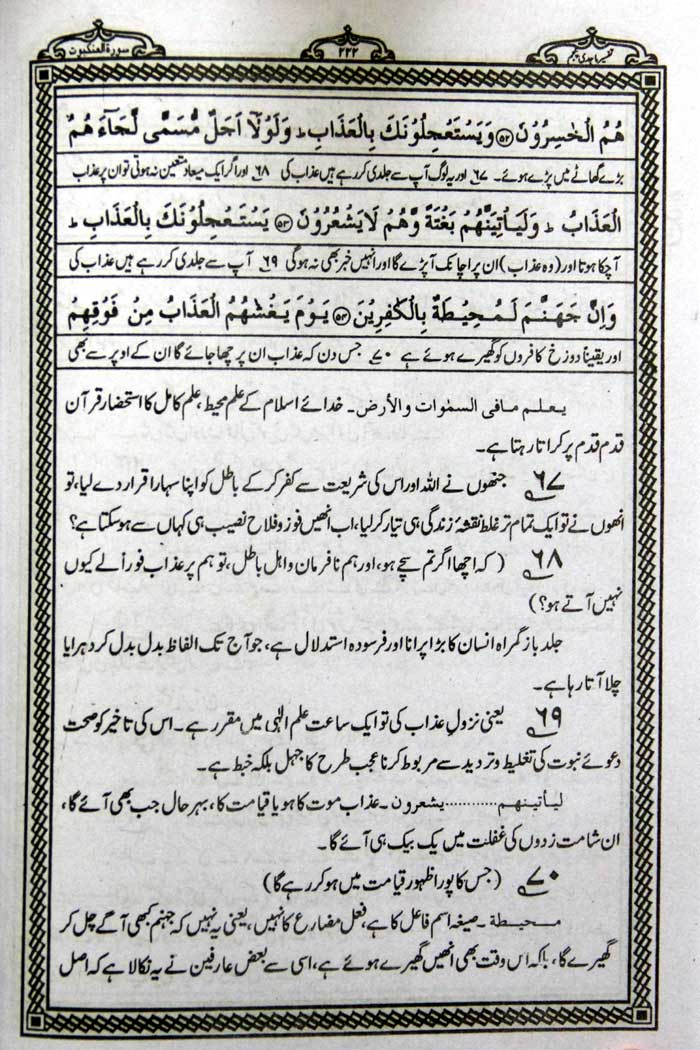 تفسیر ماجدی پنجم
۲۲۲
سورة العنکبوت
هُمُ الْخٰسِرُوْنَ ۵۲ وَيَسْتَعْجِلُوْنَكَ بِالْعَذَابِ ط وَلَوْلَآ اَجَلٌ مُّسَمًّى لَّجَآءَ هُمُ
بڑے گھاٹے میں پڑے ہوئے۔ ۶۷ اور یہ لوگ آپ سے جلدی کررہے ہیں عذاب کی ۶۸ اور اگر ایک میعاد متعین نہ ہوتی تو ان پر عذاب
الْعَذَابُ ط وَلَيَاْتِيَنَّهُمْ بَغْتَةً وَّهُمْ لَا يَشْعُرُوْنَ ۵۳ يَسْتَعْجِلُوْنَكَ بِالْعَذَابِ ط
آچکا ہوتا اور (وہ عذاب) ان پر اچانک آپڑے گا اور انہیں خبر بھی نہ ہوگی ۶۹ آپ سے جلدی کررہے ہیں عذاب کی
وَاِنَّ جَهَنَّمَ لَمُحِيْطَةٌ بِالْكٰفِرِيْنَ ۵۴ يَوْمَ يَغْشٰهُمُ الْعَذَابُ مِنْ فَوْقِهِمْ
اور یقیناً دوزخ کافروں کو گھیرے ہوئے ہے ۷۰ جس دن کہ عذاب ان پر چھا جائے گا ان کے اوپر سے بھی
یعلم مافی السمٰوات والأرض۔ خدائے اسلام کے علم محیط، علم کامل کا استحضار قرآن
قدم قدم پر کراتا رہتا ہے۔
۶۷ جنھوں نے اللہ اور اس کی شریعت سے کفر کرکے باطل کو اپنا سہارا قرار دے لیا، تو
انھوں نے تو ایک تمام تر غلط نقشۂ زندگی ہی تیار کرلیا، اب انھیں فوز و فلاح نصیب ہی کہاں سے ہوسکتا ہے؟
۶۸ (کہ اچھا اگر تم سچے ہو، اور ہم نافرمان و اہل باطل، تو ہم پر عذاب فوراً لے کیوں
نہیں آتے ہو؟)
جلد باز گمراہ انسان کا بڑا پرانا اور فرسودہ استدلال ہے، جو آج تک الفاظ بدل بدل کر دہرایا
چلا آتا رہا ہے۔
۶۹ یعنی نزولِ عذاب کی تو ایک ساعت علم الٰہی میں مقرر ہے۔ اس کی تاخیر کو صحت
دعوائے نبوت کی تغلیط و تردید سے مربوط کرنا عجب طرح کا جہل بلکہ خبط ہے۔
لیأتینھم..........یشعرون۔ عذاب موت کا ہو یا قیامت کا، بہرحال جب بھی آئے گا،
ان شامت زدوں کی غفلت میں یک بیک ہی آئے گا۔
۷۰ (جس کا پورا ظہور قیامت میں ہوکر رہے گا)
محیطة۔ صیغہ اسم فاعل کا ہے، فعل مضارع کا نہیں، یعنی یہ نہیں کہ جہنم کبھی آگے چل کر
گھیرے گا، بلکہ اس وقت بھی انھیں گھیرے ہوئے ہے، اسی سے بعض عارفین نے یہ نکالا ہے کہ اصل